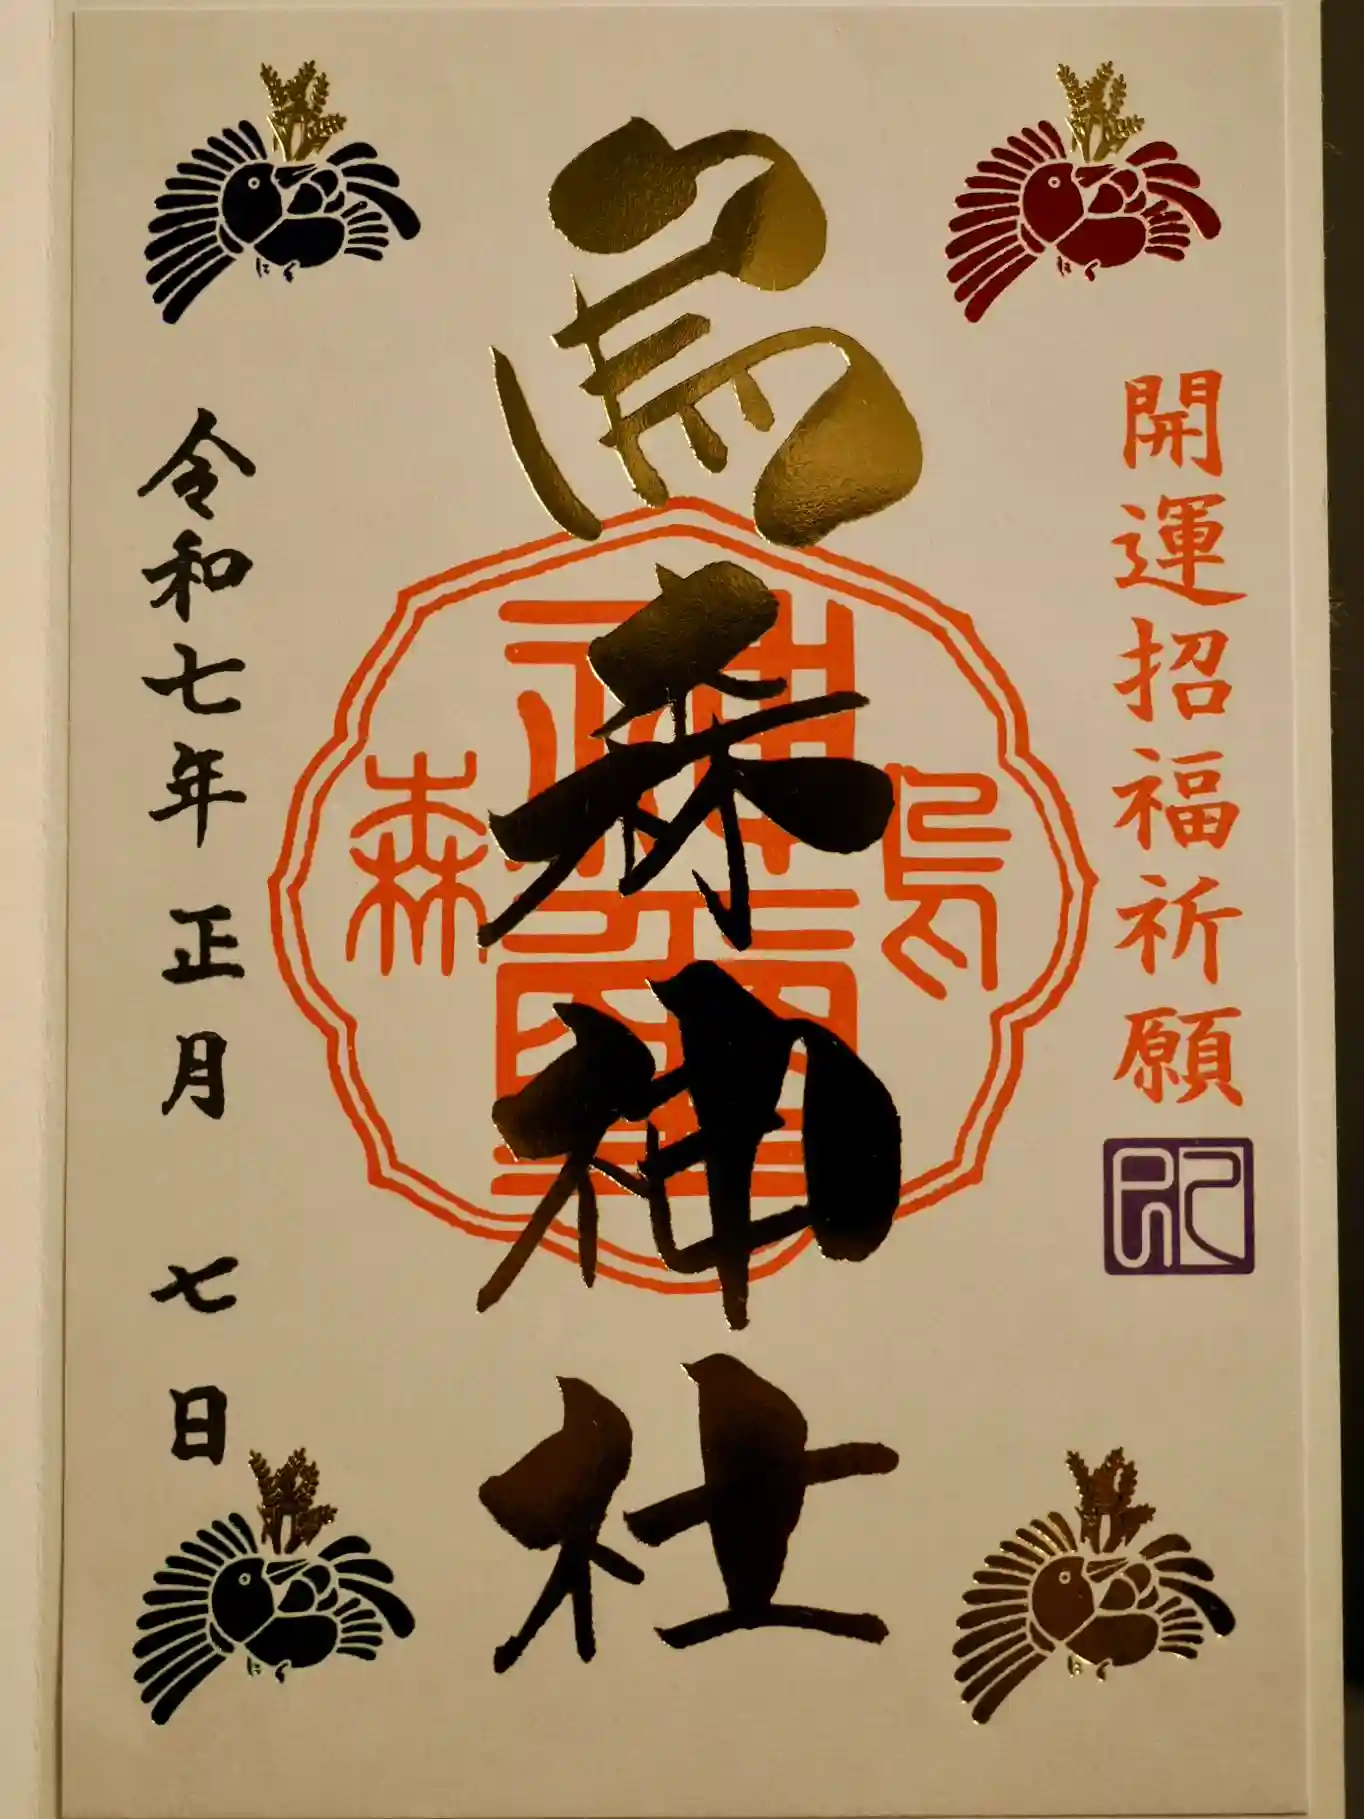 開運招福祈願
烏森神社
烏森
神璽
令和七年 正月 七日